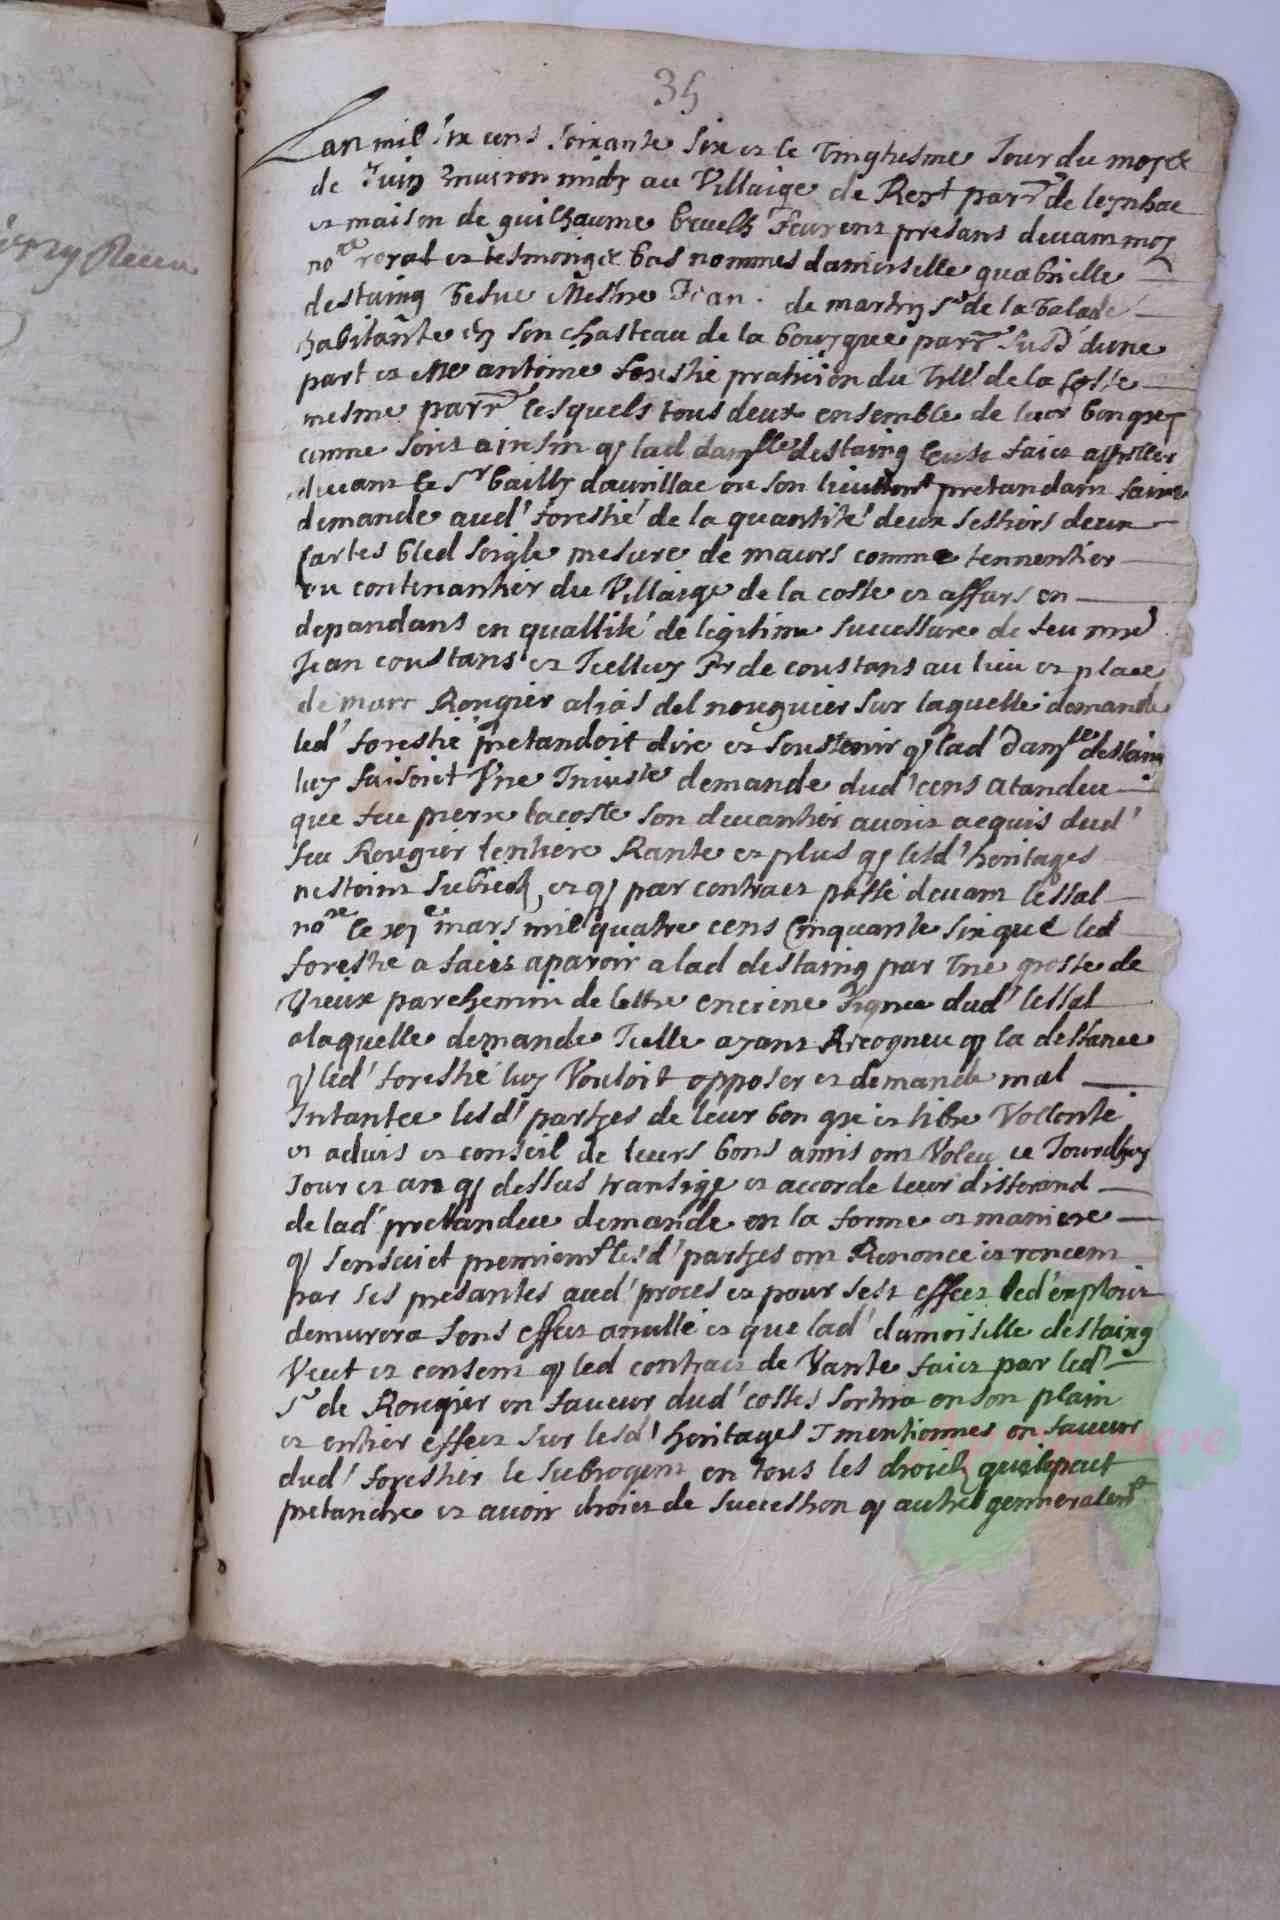 35
Lan mil six cens soixante six et le vingtiesme Jour du moys
de Juin environ midy au Villaige de Reyt parr de leynhac
et maison de guilhaume bruelh feurent presans devant moy
nore royal et tesmoingz bas nommes damoiselle guabrielle
destaing vefue Messire Jean de martin sr de la valade
habitante en son chasteau de la bourgue parr susd dune
part et Me antoine forestie praticien du vill de la coste
mesme parr lesquels tous deux ensemble de leur bon gre
comme soict ainsin q lad damlle destaing heust faict apeller
devant le sr bailly daurillac ou son lieutent pretandant faire
demande aud forestie de la quantite deux sestiers deux
cartes bled seigle mesure de maurs comme tennentier
ou contenantier du Villaige de la coste et affars en
depandans en quallite de legitime successure de feu me
Jean coustans et Icelluy Sr de coustans au lieu et place
de marc Rongier alias del nouguier sur laquelle demande
led forestie pretandoit dire et soustenir q lad damlle destaing
luy faisoiet Une Iniuste demande dud cens atandeu
que feu pierre lacoste son devantier avoict acquis dud
feu Rougier lentiere Rante et plus q lesd heritages
nestoint subiectz, et q par contract passe devant lessal
nore le mars mil quatre cens Cinquante six que led
forestie a faict aparoir a lad destaing par Une grosse de
Vieux parchemin de lettre enciene signee dud lessal
a laquelle demande Icelle ayant Recogneu q la deffance
q led forestie luy Vouloit opposer et demande mal
Intantee lesd partyes de leur bon gre et libre Vollonte
et advis et conseil de leurs bons amis ont Voleu ce Jourdhuy
Jour et an q dessus transige et accorde leur differand
de lad pretandue demande en la forme et maniere
q sensuict premieremt lesd partyes ont Renonce et renoncent
par ses presantes aud proces et pour sest effect led exploict
demurera sens effect anulle et que lad damoiselle destaing
Veut et consent q led contract de Vante faict par led
sr de Rougier en faveur dud costes sortira en son plain
et entier effect sur lesd heritages y mentionnes en faveur
dud forestier le subrogent en tous les droictz quelle peut
pretandre et avoir droict de succession q autre generalemt
Apregemere